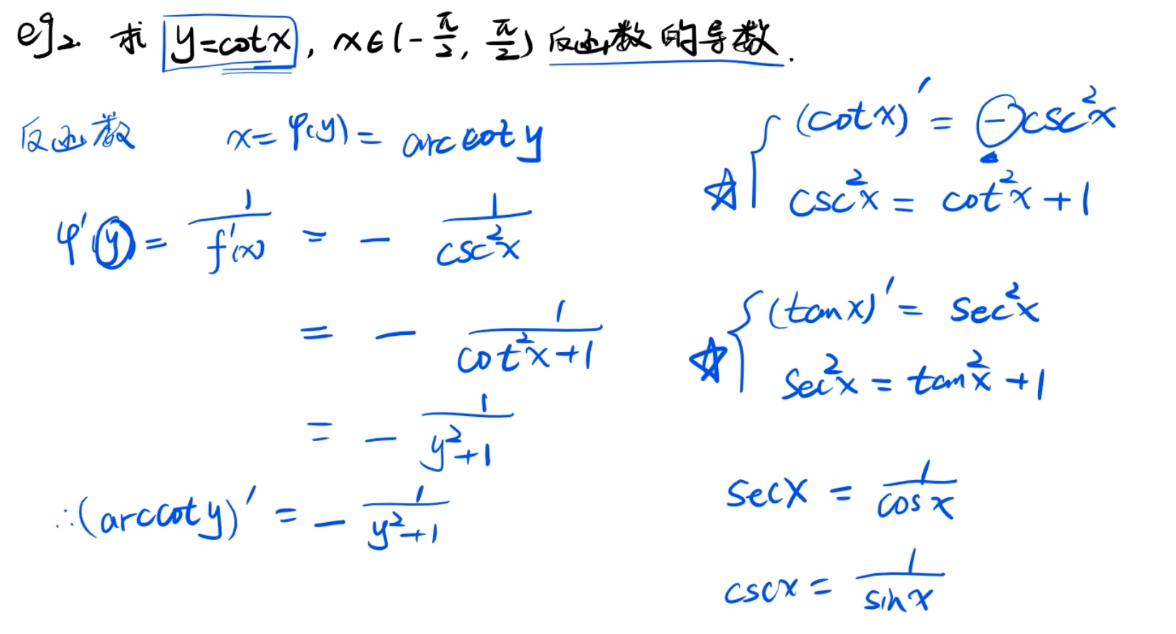 eg2. 求 y=cotx, x∈(-π/2, π/2) 反函数的导数.
反函数 x=φ(y)=arccoty
φ'(y)=1/f'(x) = -1/csc²x
= -1/(cot²x+1)
= -1/(y²+1)
∴(arccoty)' = -1/(y²+1)
☆{(cotx)' = -csc²x
csc²x = cot²x+1
☆{(tanx)' = sec²x
sec²x = tan²x+1
secx = 1/cosx
cscx = 1/sinx